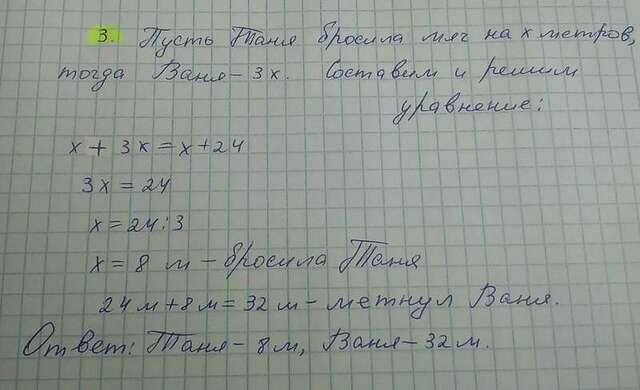 3. Пусть Таня бросила мяч на x метров,
тогда Ваня - 3x. Составим и решим
уравнение:
x + 3x = x + 24
3x = 24
x = 24 : 3
x = 8 м - бросила Таня
24 м + 8 м = 32 м - метнул Ваня.
Ответ: Таня - 8 м, Ваня - 32 м.